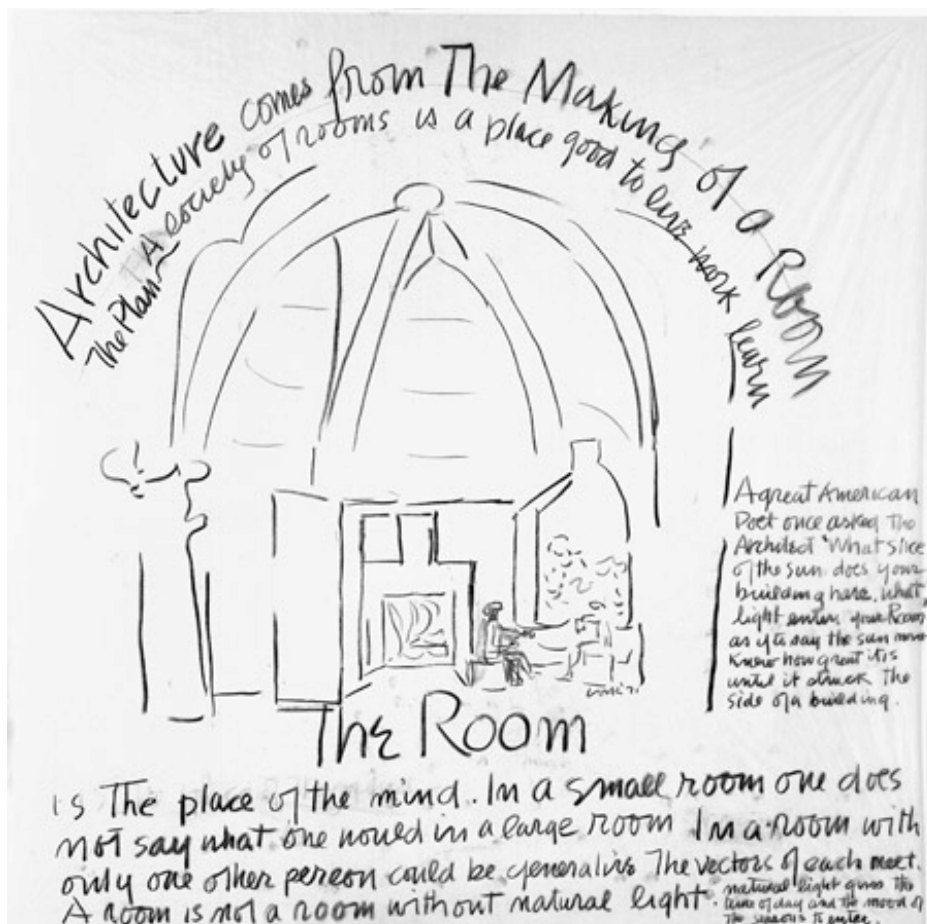 Architecture comes from The Making of a Room
The Plan - A society of rooms is a place good to live work learn
A great American
Poet once asked The
Architect 'What slice
of the sun does your
building have. What
light enters your Room
as if to say the sun never
knew how great it is
until it struck the
side of a building.
The Room
is The place of the mind. In a small room one does
not say what one would in a large room In a room with
only one other person could be generative The vectors of each meet.
A room is not a room without natural light.
natural light gives the
time of day and the mood of
the seasons to enter